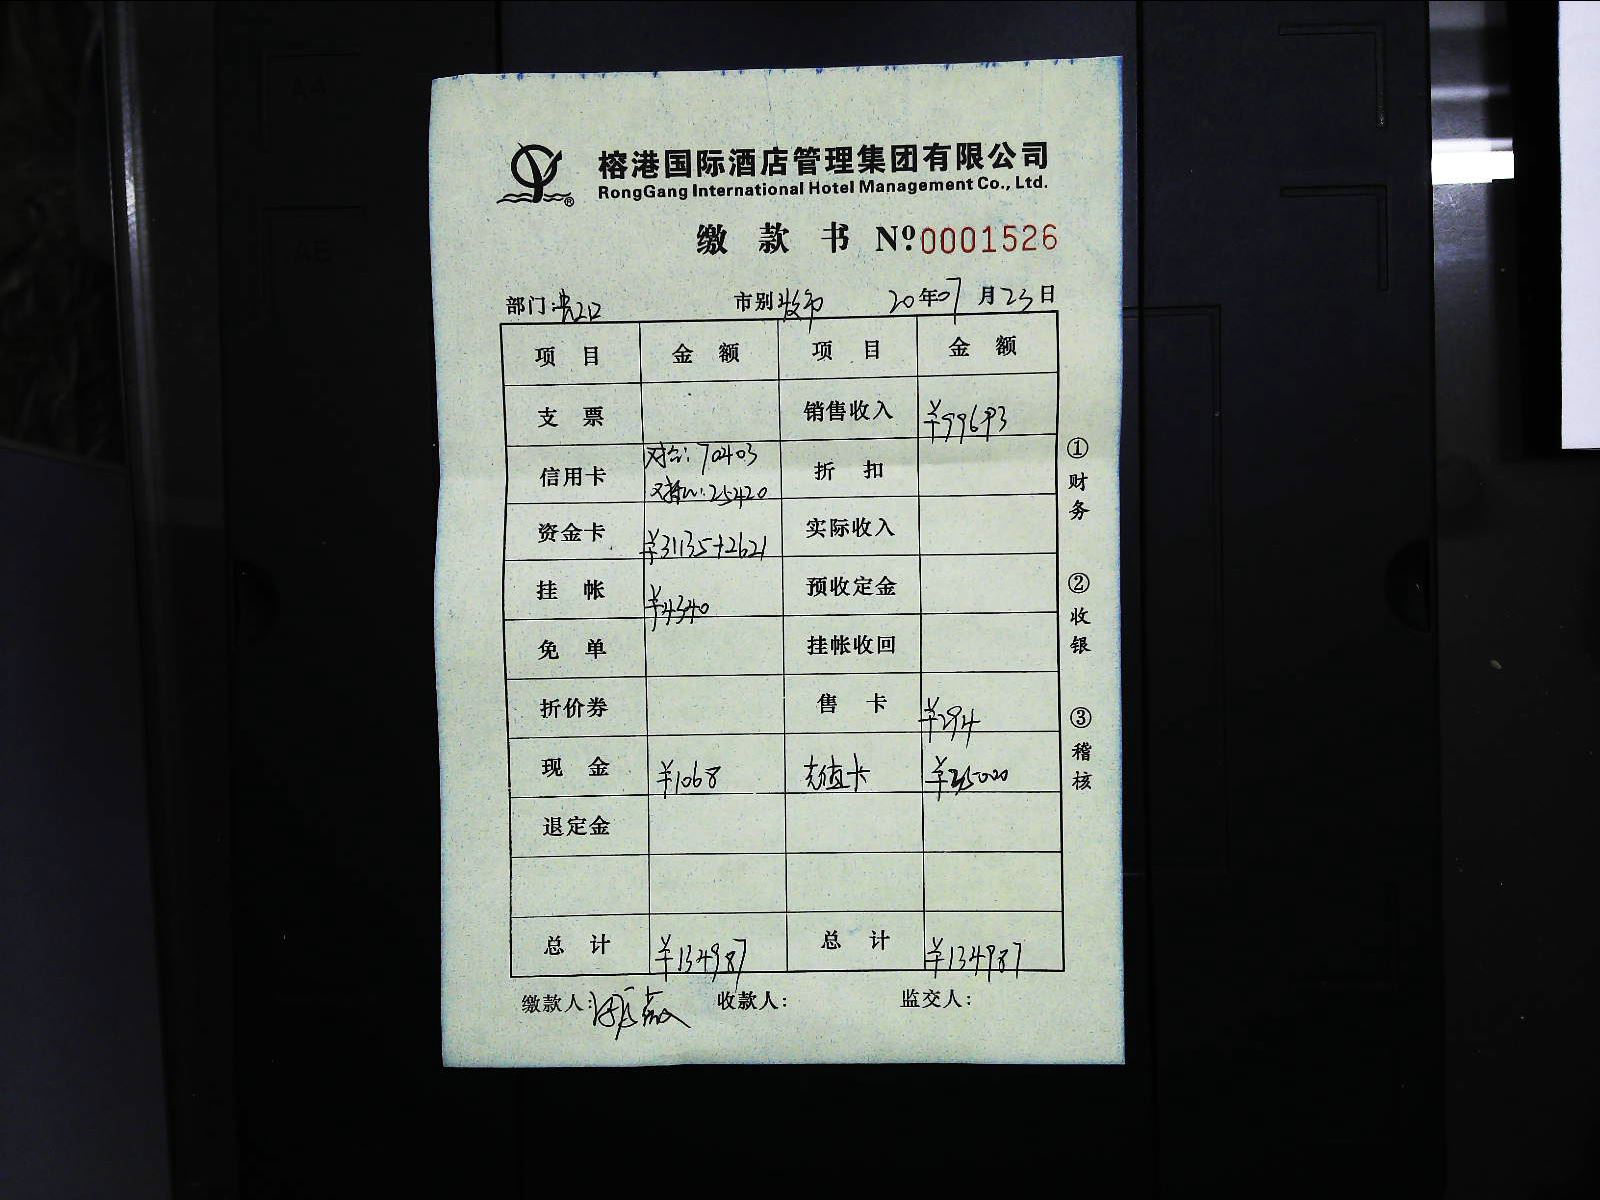 榕港国际酒店管理集团有限公司
RongGang International Hotel Management Co., Ltd.
缴款书 Nº 0001526
部门: 市别 夜市 20年07月23日
项目 金额 项目 金额
支票 销售收入 ¥99693
信用卡 对公:70403
:25420 折扣
资金卡 ¥31135+2621 实际收入
挂帐 ¥4340 预收定金
免单 挂帐收回
折价券 售卡 ¥294
现金 ¥1068 充值卡 ¥35000
退定金
总计 ¥134987 总计 ¥134987
缴款人: 收款人: 监交人:
①财务 ②收银 ③稽核
A4